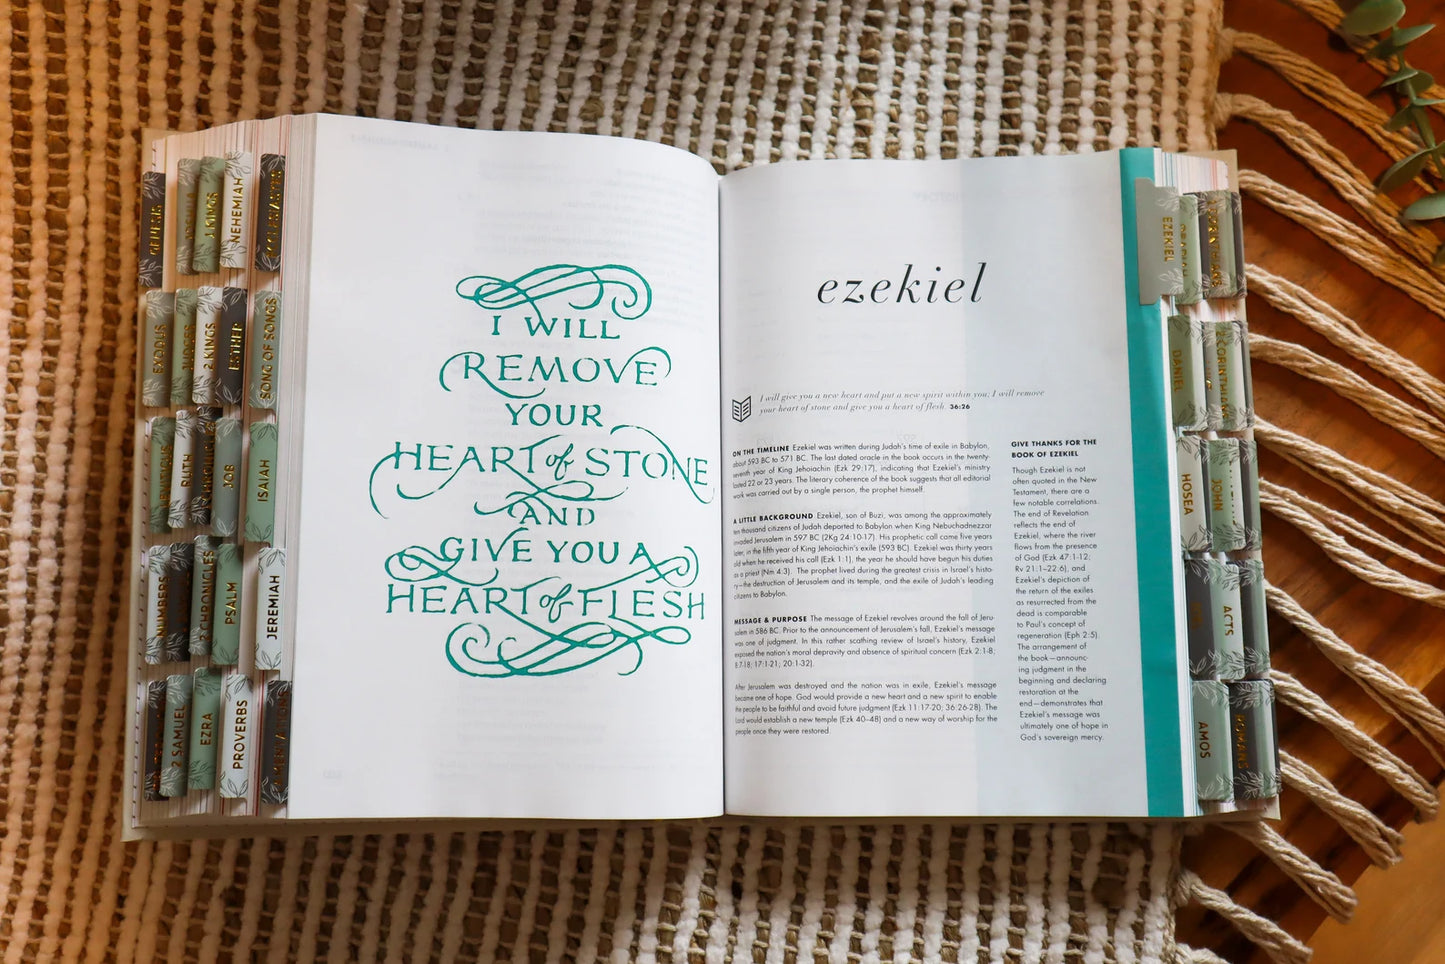 I WILL
REMOVE
YOUR
HEART of STONE
AND
GIVE YOU A
HEART of FLESH
ezekiel
I will give you a new heart and put a new spirit within you; I will remove
your heart of stone and give you a heart of flesh. 36:26
ON THE TIMELINE Ezekiel was written during Judah's time of exile in Babylon,
about 593 BC to 571 BC. The last dated oracle in the book occurs in the twenty-
seventh year of King Jehoiachin (Ezk 29:17), indicating that Ezekiel's ministry
lasted 22 or 23 years. The literary coherence of the book suggests that all editorial
work was carried out by a single person, the prophet himself.
A LITTLE BACKGROUND Ezekiel, son of Buzi, was among the approximately
ten thousand citizens of Judah deported to Babylon when King Nebuchadnezzar
invaded Jerusalem in 597 BC (2Kg 24:10-17). His prophetic call came five years
later, in the fifth year of King Jehoiachin's exile (593 BC). Ezekiel was thirty years
old when he received his call (Ezk 1:1), the year he should have begun his duties
as a priest (Nm 4:3). The prophet lived during the greatest crisis in Israel's histo-
ry—the destruction of Jerusalem and its temple, and the exile of Judah's leading
citizens to Babylon.
MESSAGE & PURPOSE The message of Ezekiel revolves around the fall of Jeru-
salem in 586 BC. Prior to the announcement of Jerusalem's fall, Ezekiel's message
was one of judgment. In this rather scathing review of Israel's history, Ezekiel
exposed the nation's moral depravity and absence of spiritual concern (Ezk 2:1-8;
8:7-18; 17:1-21; 20:1-32).
After Jerusalem was destroyed and the nation was in exile, Ezekiel's message
became one of hope. God would provide a new heart and a new spirit to enable
the people to be faithful and avoid future judgment (Ezk 11:17-20; 36:26-28). The
Lord would establish a new temple (Ezk 40–48) and a new way of worship for the
people once they were restored.
GIVE THANKS FOR THE
BOOK OF EZEKIEL
Though Ezekiel is not
often quoted in the New
Testament, there are a
few notable correlations.
The end of Revelation
reflects the end of
Ezekiel, where the river
flows from the presence
of God (Ezk 47:1-12;
Rv 21:1–22:6), and
Ezekiel's depiction of
the return of the exiles
as resurrected from the
dead is comparable
to Paul's concept of
regeneration (Eph 2:5).
The arrangement of
the book—announc-
ing judgment in the
beginning and declaring
restoration at the
end—demonstrates that
Ezekiel's message was
ultimately one of hope in
God's sovereign mercy.
GENESIS
1 KINGS
NEHEMIAH
EXODUS
JUDGES
2 KINGS
ESTHER
SONG OF SONGS
LEVITICUS
RUTH
JOB
ISAIAH
NUMBERS
2 CHRONICLES
PSALM
JEREMIAH
2 SAMUEL
EZRA
PROVERBS
EZEKIEL
DANIEL
HOSEA
JOHN
ACTS
AMOS
ROMANS